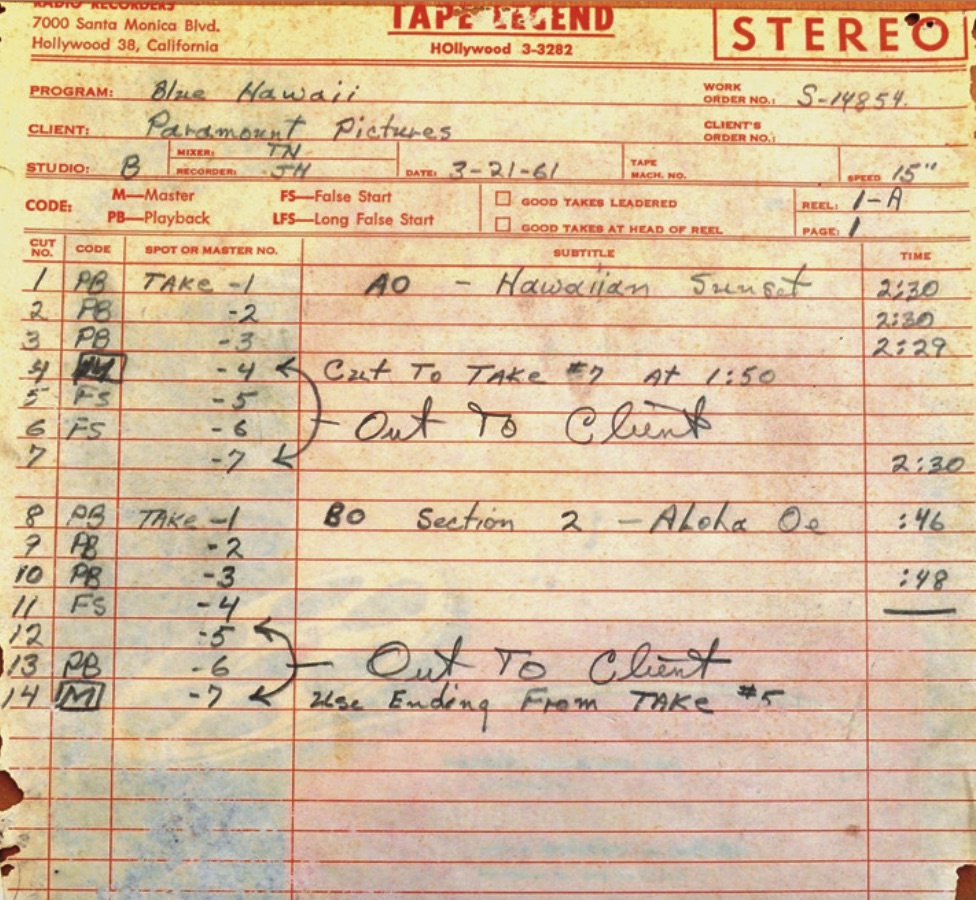 RADIO RECORDERS
7000 Santa Monica Blvd.
Hollywood 38, California
TAPE LEGEND
HOllywood 3-3282
STEREO
PROGRAM: Blue Hawaii
WORK ORDER NO.: S-14854.
CLIENT: Paramount Pictures
CLIENT'S ORDER NO.:
STUDIO: B
MIXER: TN
RECORDER: JH
DATE: 3-21-61
TAPE MACH. NO.
SPEED 15"
CODE: M—Master FS—False Start
PB—Playback LFS—Long False Start
GOOD TAKES LEADERED
GOOD TAKES AT HEAD OF REEL
REEL: 1-A
PAGE: 1
CUT NO. CODE SPOT OR MASTER NO. SUBTITLE TIME
1 PB TAKE -1 AO - Hawaiian Sunset 2:30
2 PB -2 2:30
3 PB -3 2:29
4 M -4 Cut To TAKE #7 At 1:50
5 FS -5
6 FS -6 Out To Client
7 -7 2:30
8 PB TAKE -1 BO Section 2 - Aloha Oe :46
9 PB -2
10 PB -3 :48
11 FS -4
12 -5
13 PB -6 Out To Client
14 M -7 Use Ending From TAKE #5